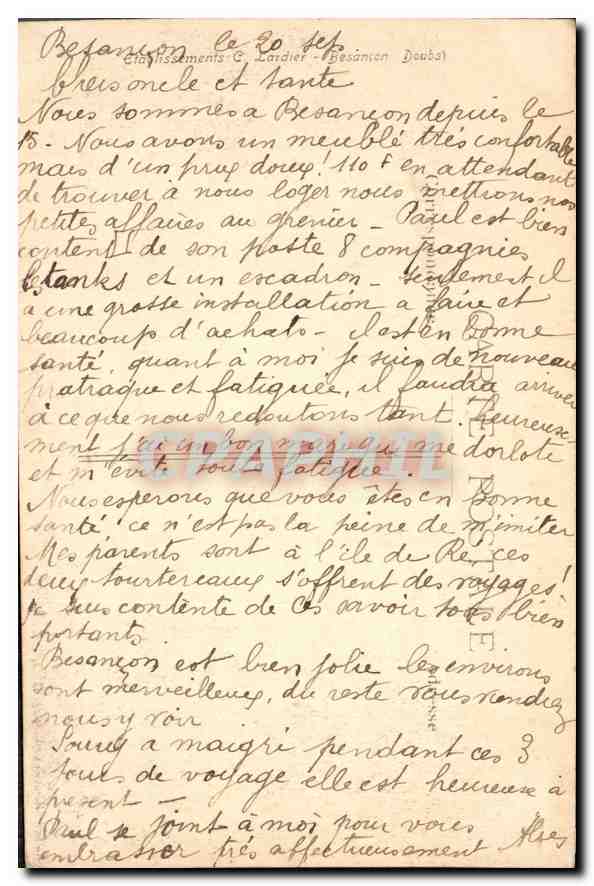 Besançon le 20 sep
Etablissements C. Lardier - Besancon Doubs)
oncle et tante
Nous sommes a Besançon depuis le
15 - Nous avons un meublé très confortable
mais d'un prix doux! 110 f en attendant
de trouver a nous loger nous mettrons nos
petites affaires au grenier - Paul est bien
content de son poste 8 compagnies
de tanks et un escadron - seulement il
a une grosse installation a faire et
beaucoup d'achats - il est en bonne
santé, quant à moi je suis de nouveau
patraque et fatiguée, il faudra arriver
à ce que nous redoutons tant. heureuse-
ment j'ai un bon mari qui me dorlote
et m'évite toute fatigue.
Nous esperons que vous êtes en bonne
santé ce n'est pas la peine de m'imiter
Mes parents sont à l'ile de Re, ces
deux tourtereaux s'offrent des voyages!
je suis contente de les savoir tous bien
portants.
Besançon est bien jolie les environs
sont merveilleux, du reste vous viendrez
nous y voir
a maigri pendant ces 3
jours de voyage elle est heureuse à
présent -
Paul se joint à moi pour vous
embrasser très affectueusement
CARTE POSTALE
Correspondance
Adresse
CPAPHIL